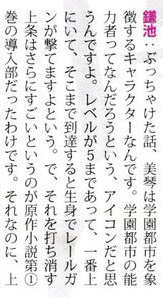 鎌池：ぶっちゃけた話、美琴は学園都市を象
徴するキャラクターなんです。学園都市の能
力者ってなんだろうという、アイコンだと思
うんですよ。レベルが5まであって、一番上
にいて、そこまで到達すると生身でレールガ
ンが撃てますよという。で、それを打ち消す
上条はさらにすごいというのが原作小説第①
巻の導入部だったわけです。それなのに、上